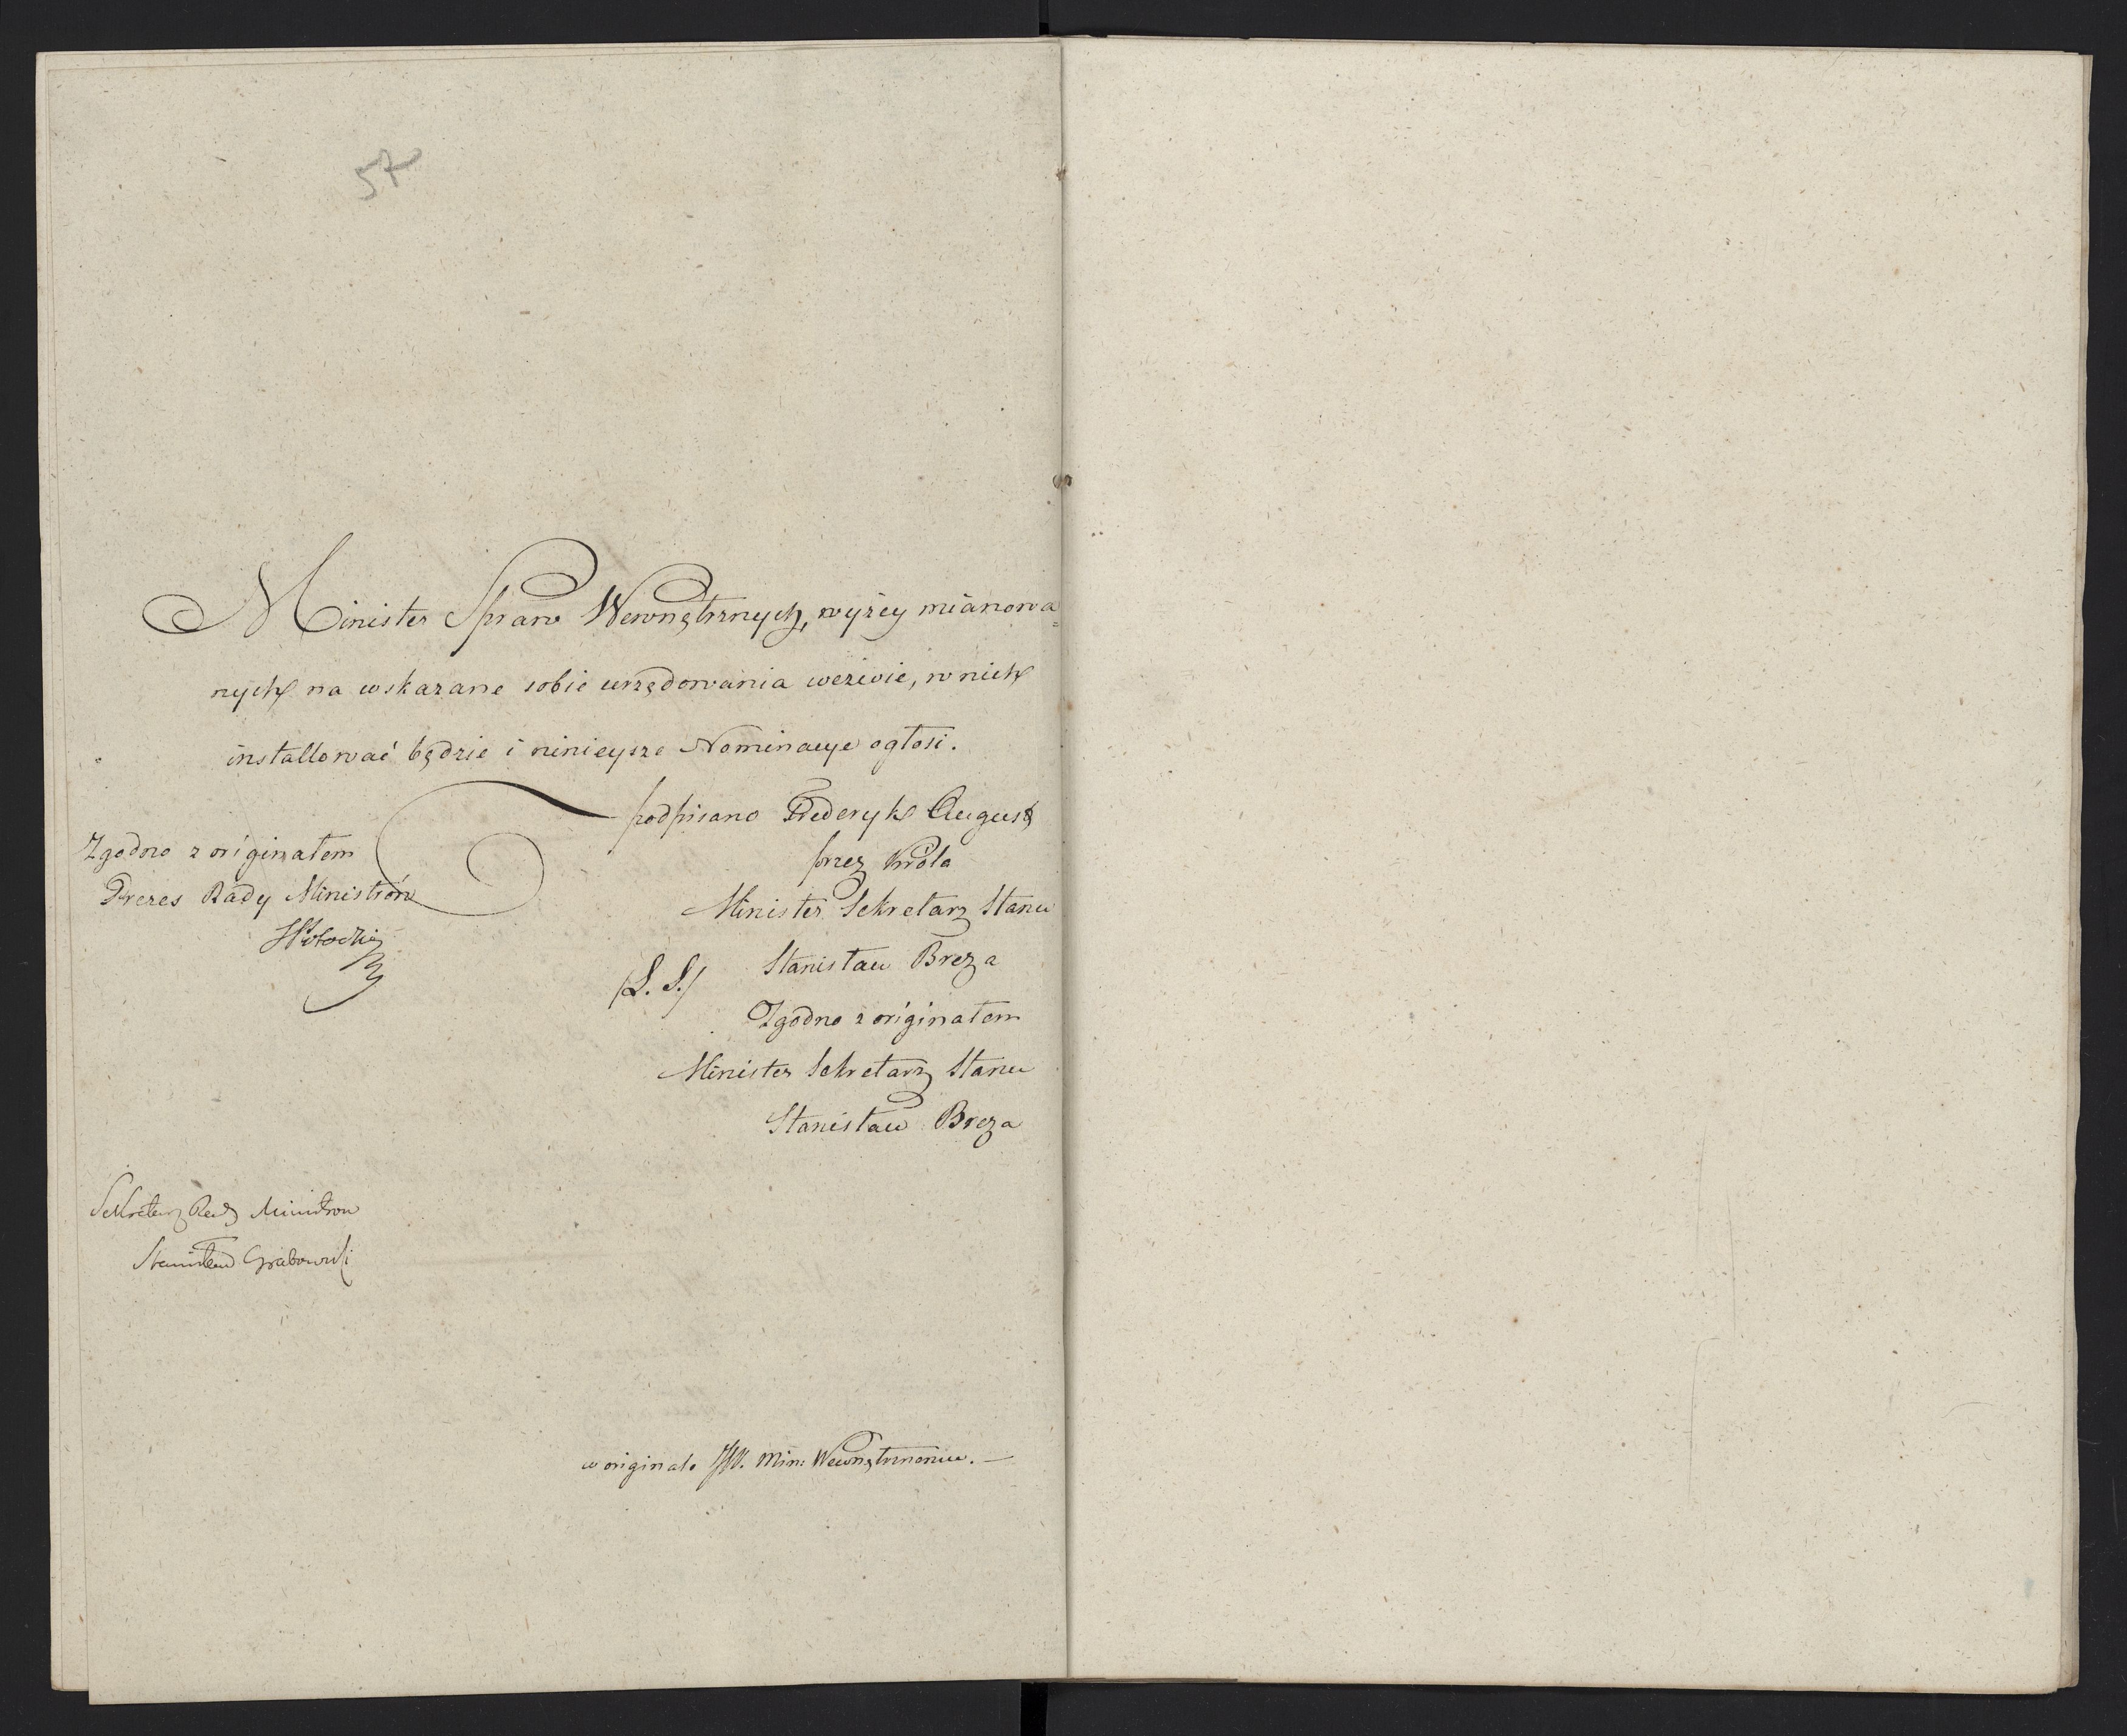 57
Minister Spraw Wewnętrznych, wyżey mianowa=
nych na wskazane sobie urzędowania wezwie, w nich
installować będzie i ninieysze Nominacye ogłosi.
podpisano Frederyk August
przez Króla
Minister Sekretarz Stanu
(L. S.) Stanisław Breza
Zgodno z originałem
Minister Sekretarz Stanu
Stanisław Breza
Zgodno z originałem
Prezes Rady Ministrów
Sekretarz Rady Ministrow
Stanisław Grabowski
w originale JW. Min: Wewnętrznemu. —